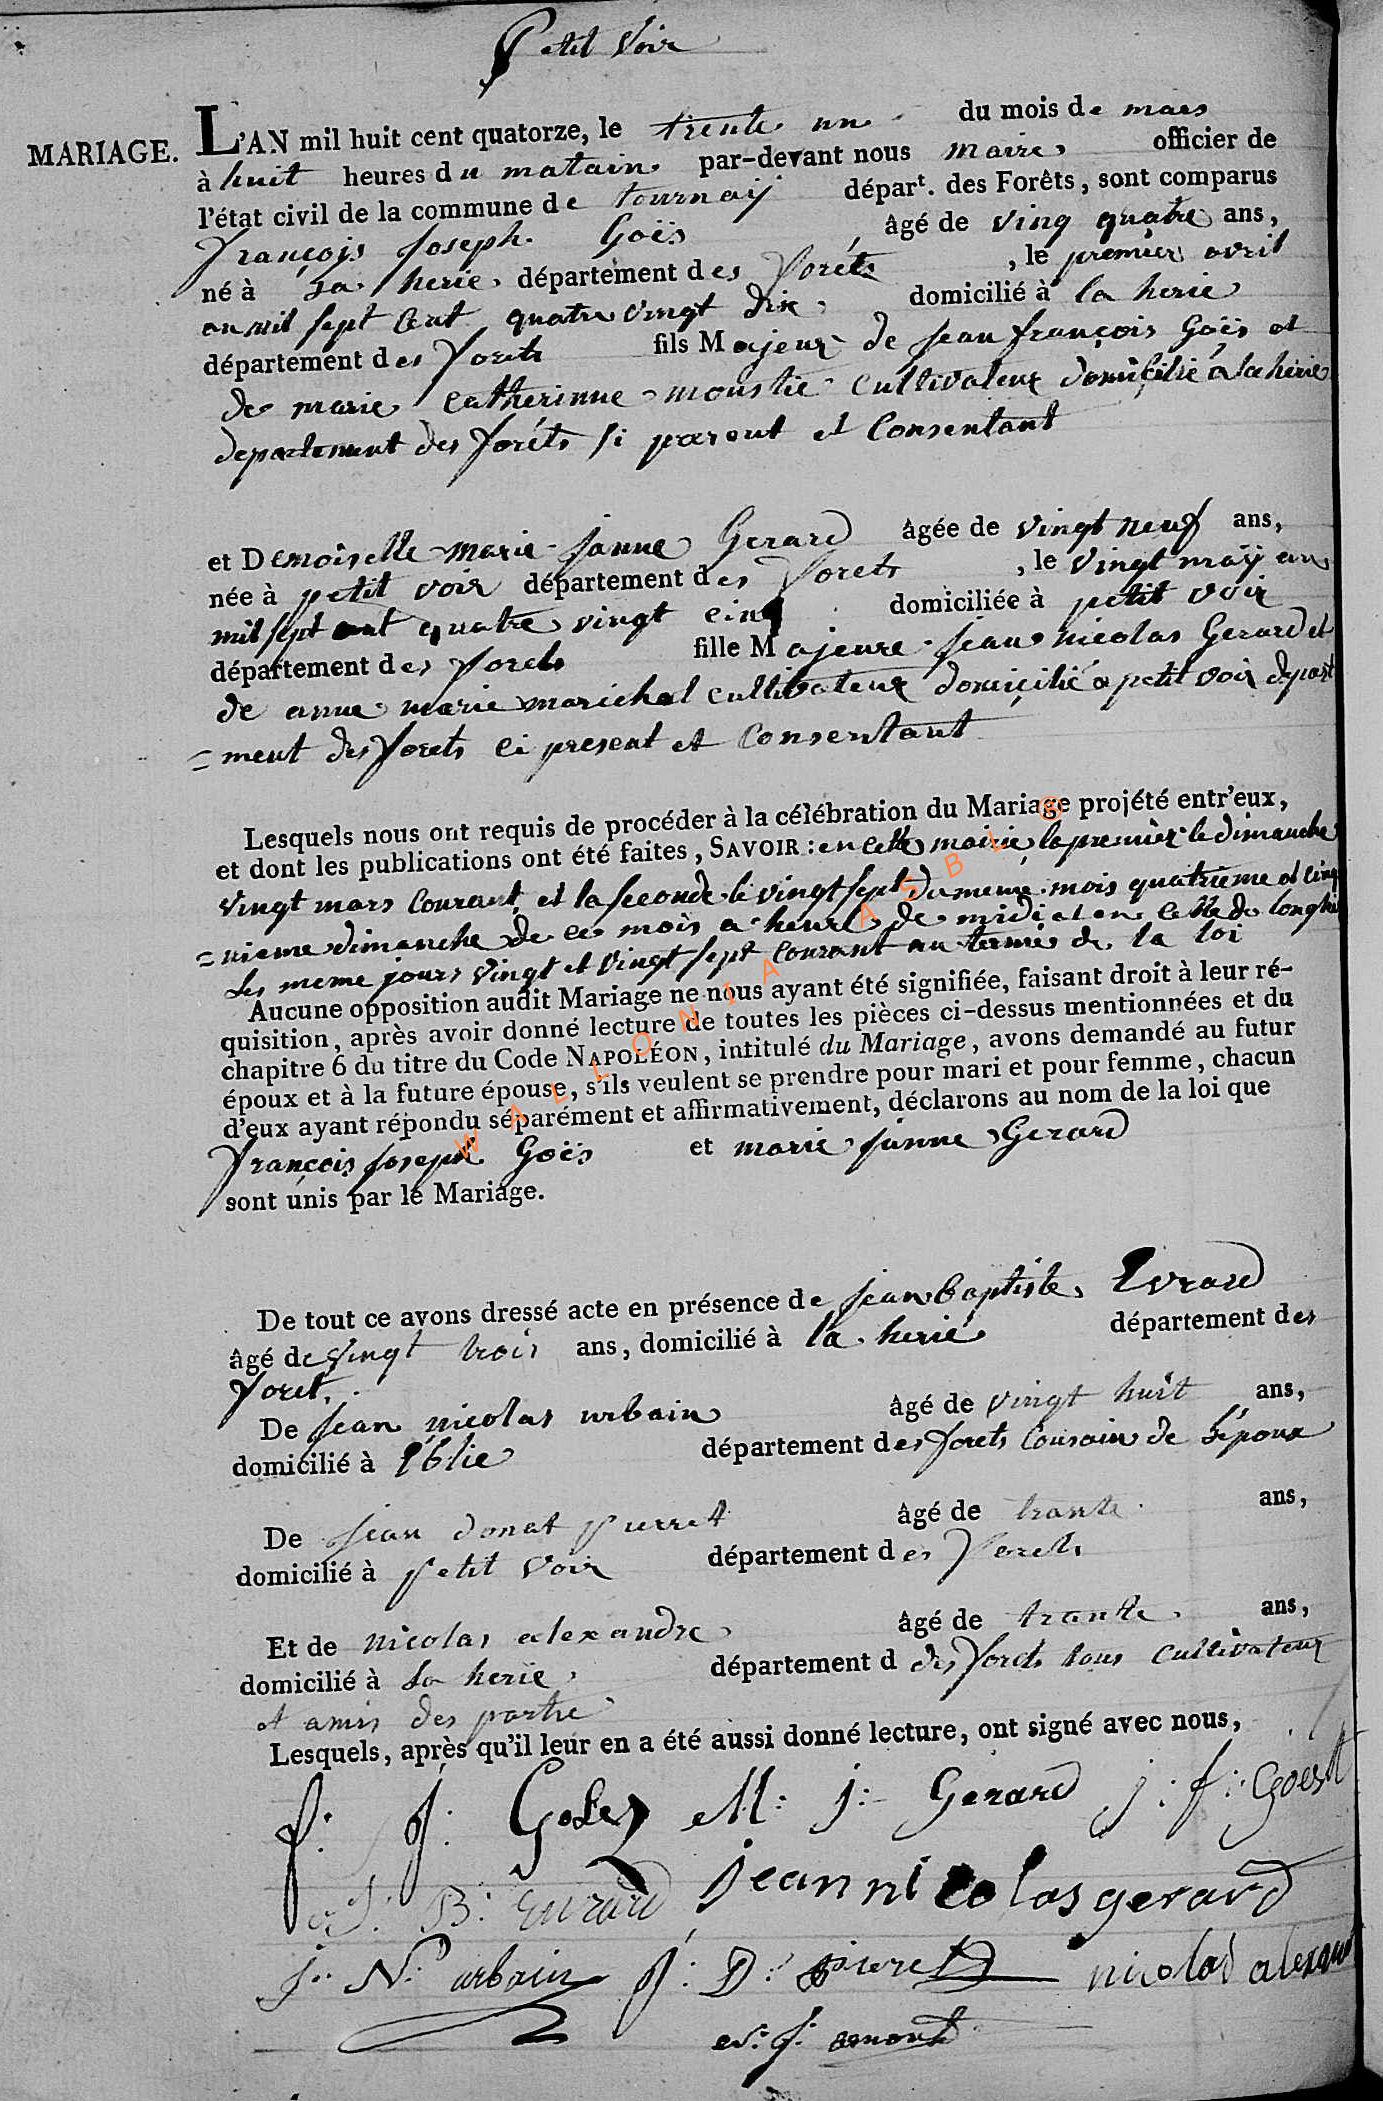 Petit Voir
MARIAGE.
L'AN mil huit cent quatorze, le trente un du mois de mars
à huit heures du matain par-devant nous maire officier de
l'état civil de la commune de tournaÿ départ. des Forêts, sont comparus
françois Joseph Goës, âgé de ving quatre ans,
né à La herie département des foréts, le premier avril
an mil sept Cent quatre vingt dix domicilié à la herie
département des forets fils Majeur de jean françois Goës et
de marie Catherinne moustie cultivateur domicilié a la herie
departement des foréts si parent et Consentant
et Demoiselle marie janne Gerard âgée de vingt neuf ans,
née à petit voir département des forets, le vingt maÿ an
mil sept cent quatre vingt cinq domiciliée à petit voir
département des forets fille Majeure jean nicolas Gerard et
de anne marie marichal cultivateur domicilié a petit voir depart
= ment des forets ci present et Consentant
Lesquels nous ont requis de procéder à la célébration du Mariage projété entr'eux,
et dont les publications ont été faites, SAVOIR : en cette mairie la premier le dimanche
vingt mars courant et la seconde le vingt sept du meme mois quatrieme et cinq
= uieme dimanche de ce mois a heure de midi et en celle de longlie
les meme jours vingt et vingt sept courant au terme de la loi
Aucune opposition audit Mariage ne nous ayant été signifiée, faisant droit à leur ré-
quisition, après avoir donné lecture de toutes les pièces ci-dessus mentionnées et du
chapitre 6 du titre du Code NAPOLÉON, intitulé du Mariage, avons demandé au futur
époux et à la future épouse, s'ils veulent se prendre pour mari et pour femme, chacun
d'eux ayant répondu séparément et affirmativement, déclarons au nom de la loi que
françois Joseph Goës et marie janne Gerard
sont unis par le Mariage.
De tout ce avons dressé acte en présence de jean baptiste Evrard
âgé de vingt trois ans, domicilié à la herie département des
foret.
De jean nicolas urbain âgé de vingt huit ans,
domicilié à Eblie département des forets Cousain de l'époux
De jean donat pierret âgé de trante ans,
domicilié à petit voir département des forets
Et de nicolas alexandre âgé de trante ans,
domicilié à La herie département d des forets tous cultivateur
et amis des partie
Lesquels, après qu'il leur en a été aussi donné lecture, ont signé avec nous,
f. J: Goës M: j: Gerard j: f: Goës
J: B: Evrard jean nicolas gerard
j: N: urbain J: D: pieret nicolas alexand
WALLONIA ASBL ©